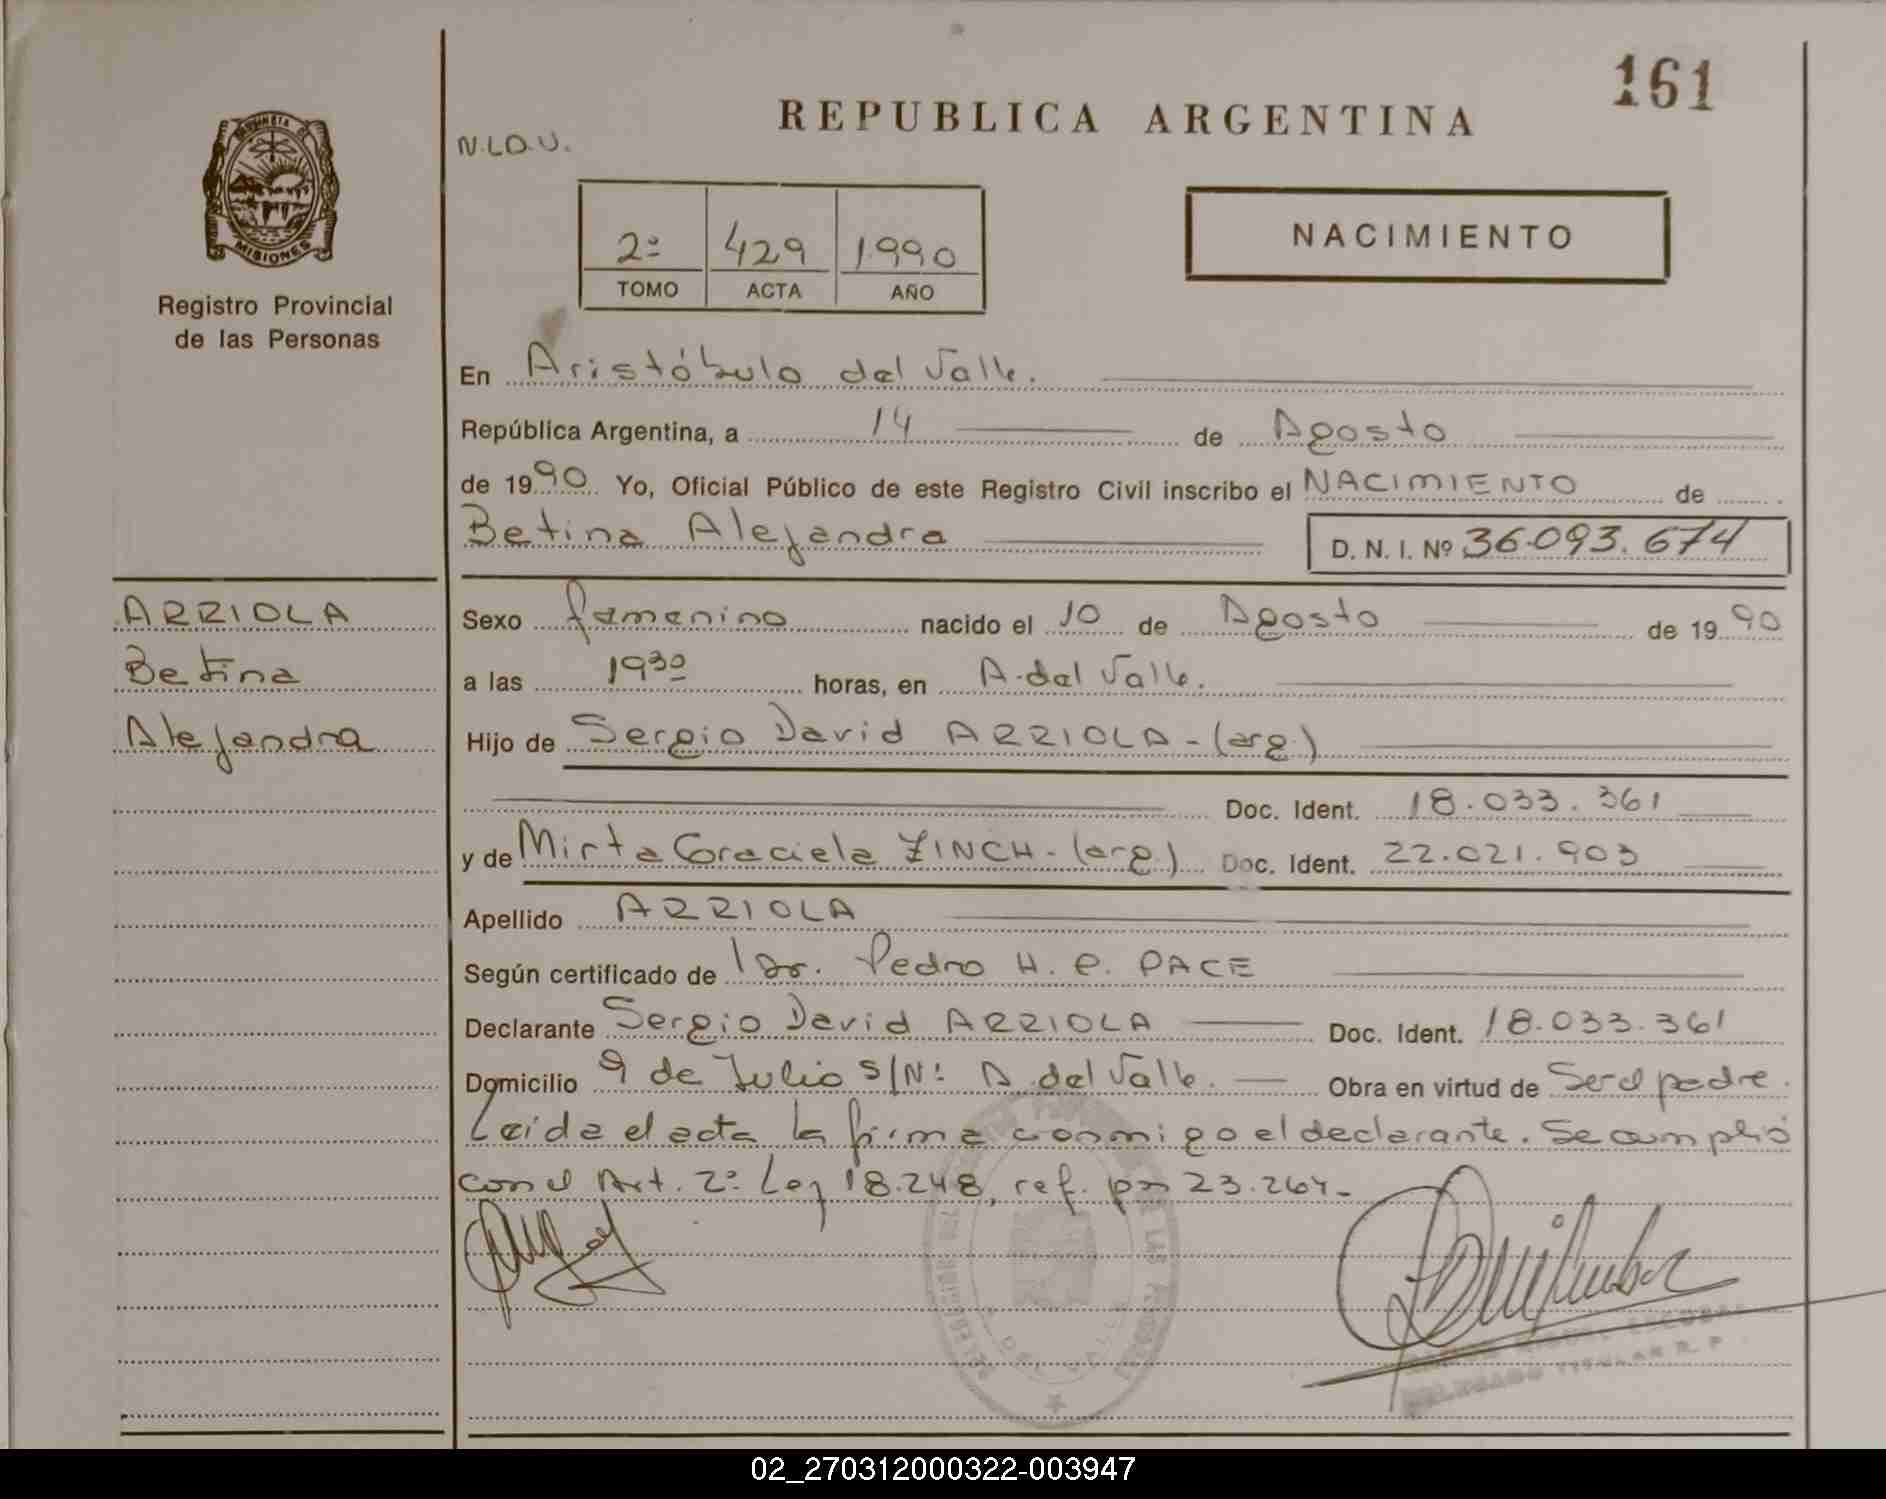 161
REPUBLICA ARGENTINA
N.LO.U.
PROVINCIA DE
MISIONES
Registro Provincial
de las Personas
2º 429 1990
TOMO ACTA AÑO
NACIMIENTO
En Aristóbulo del Valle.
República Argentina, a 14 de Agosto
de 1990. Yo, Oficial Público de este Registro Civil inscribo el NACIMIENTO de
Betina Alejandra D. N. I. Nº 36.093.674
ARRIOLA
Betina
Alejandra
Sexo femenino nacido el 10 de Agosto de 1990
a las 19³⁰ horas, en A. del Valle.
Hijo de Sergio David ARRIOLA - (arg.)
Doc. Ident. 18.033.361
y de Mirta Graciela ZINCH - (arg.) Doc. Ident. 22.021.903
Apellido ARRIOLA
Según certificado de Dr. Pedro H. P. PACE
Declarante Sergio David ARRIOLA Doc. Ident. 18.033.361
Domicilio 9 de Julio S/Nº A. del Valle. Obra en virtud de Ser el padre.
Leida el acta la firma conmigo el declarante. Se cumplió
con el Art. 2º Ley 18.248, ref. por 23.264.-
A. DEL VALLE
DELEGADO TITULAR R. P.
02_270312000322-003947